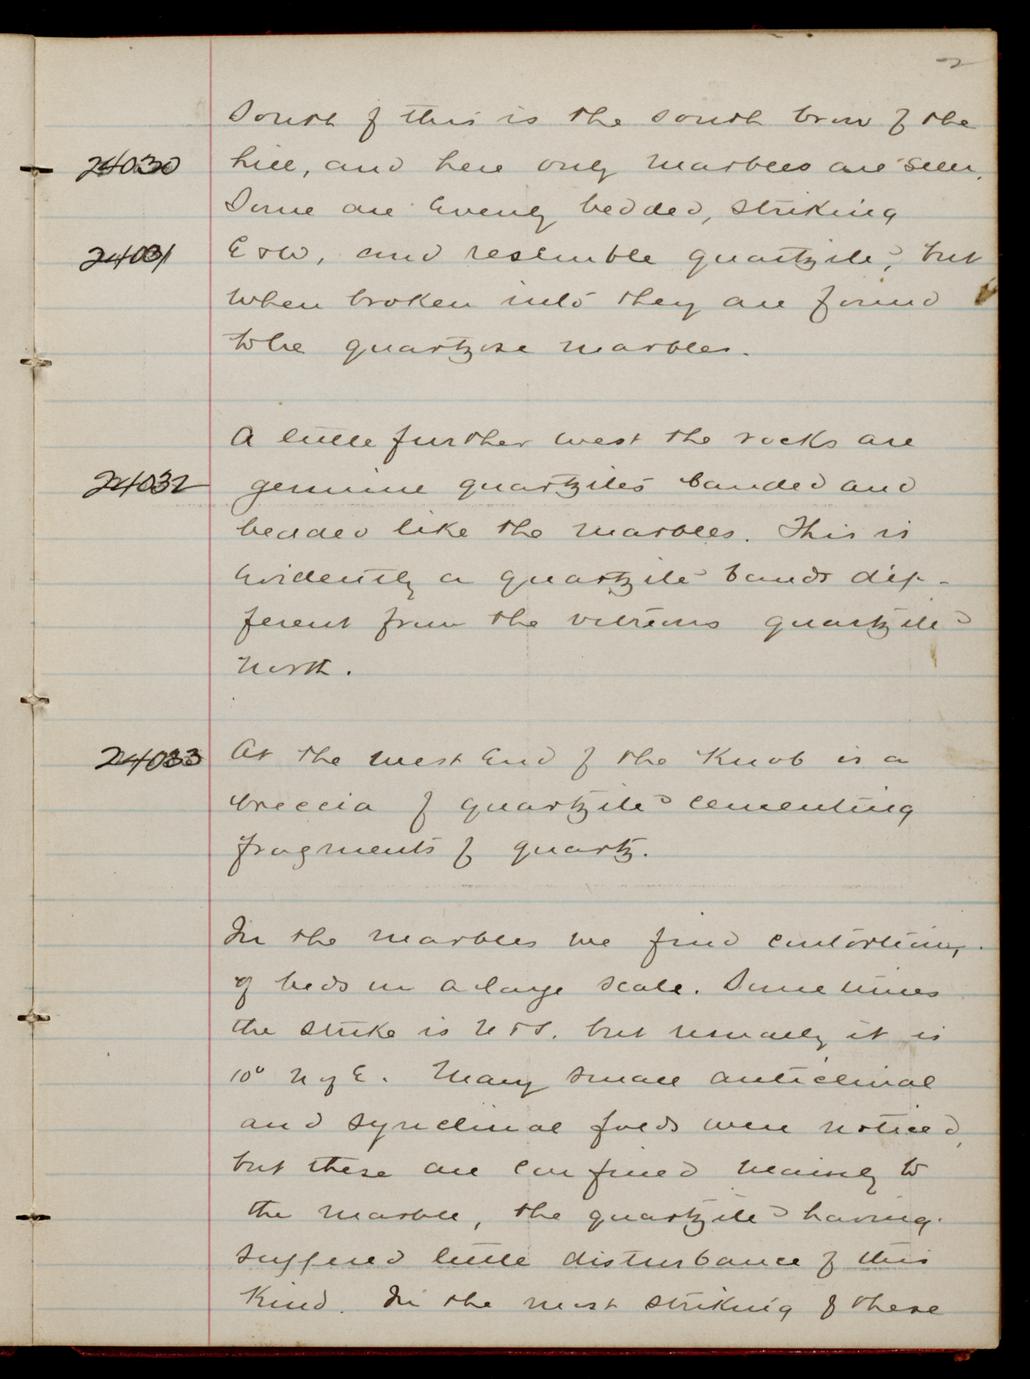 2
South of this is the south brow of the
24030 hill, and here only marbles are seen.
Some are evenly bedded, striking
24031 E & W, and resemble quartzite, but
when broken into they are found
to be quartzose marbles.
A little further west the rocks are
24032 genuine quartzites banded and
bedded like the marbles. This is
evidently a quartzite band dif-
ferent from the vitreous quartzite
north.
24033 At the west end of the Knob is a
breccia of quartzite cementing
fragments of quartz.
In the marbles we find contortions,
of beds on a large scale. Some times
the strike is N & S. but usually it is
10° N of E. Many small anticlinal
and synclinal folds were noticed,
but these are confined mainly to
the marble, the quartzite having
suffered little disturbance of this
kind. In the most striking of these